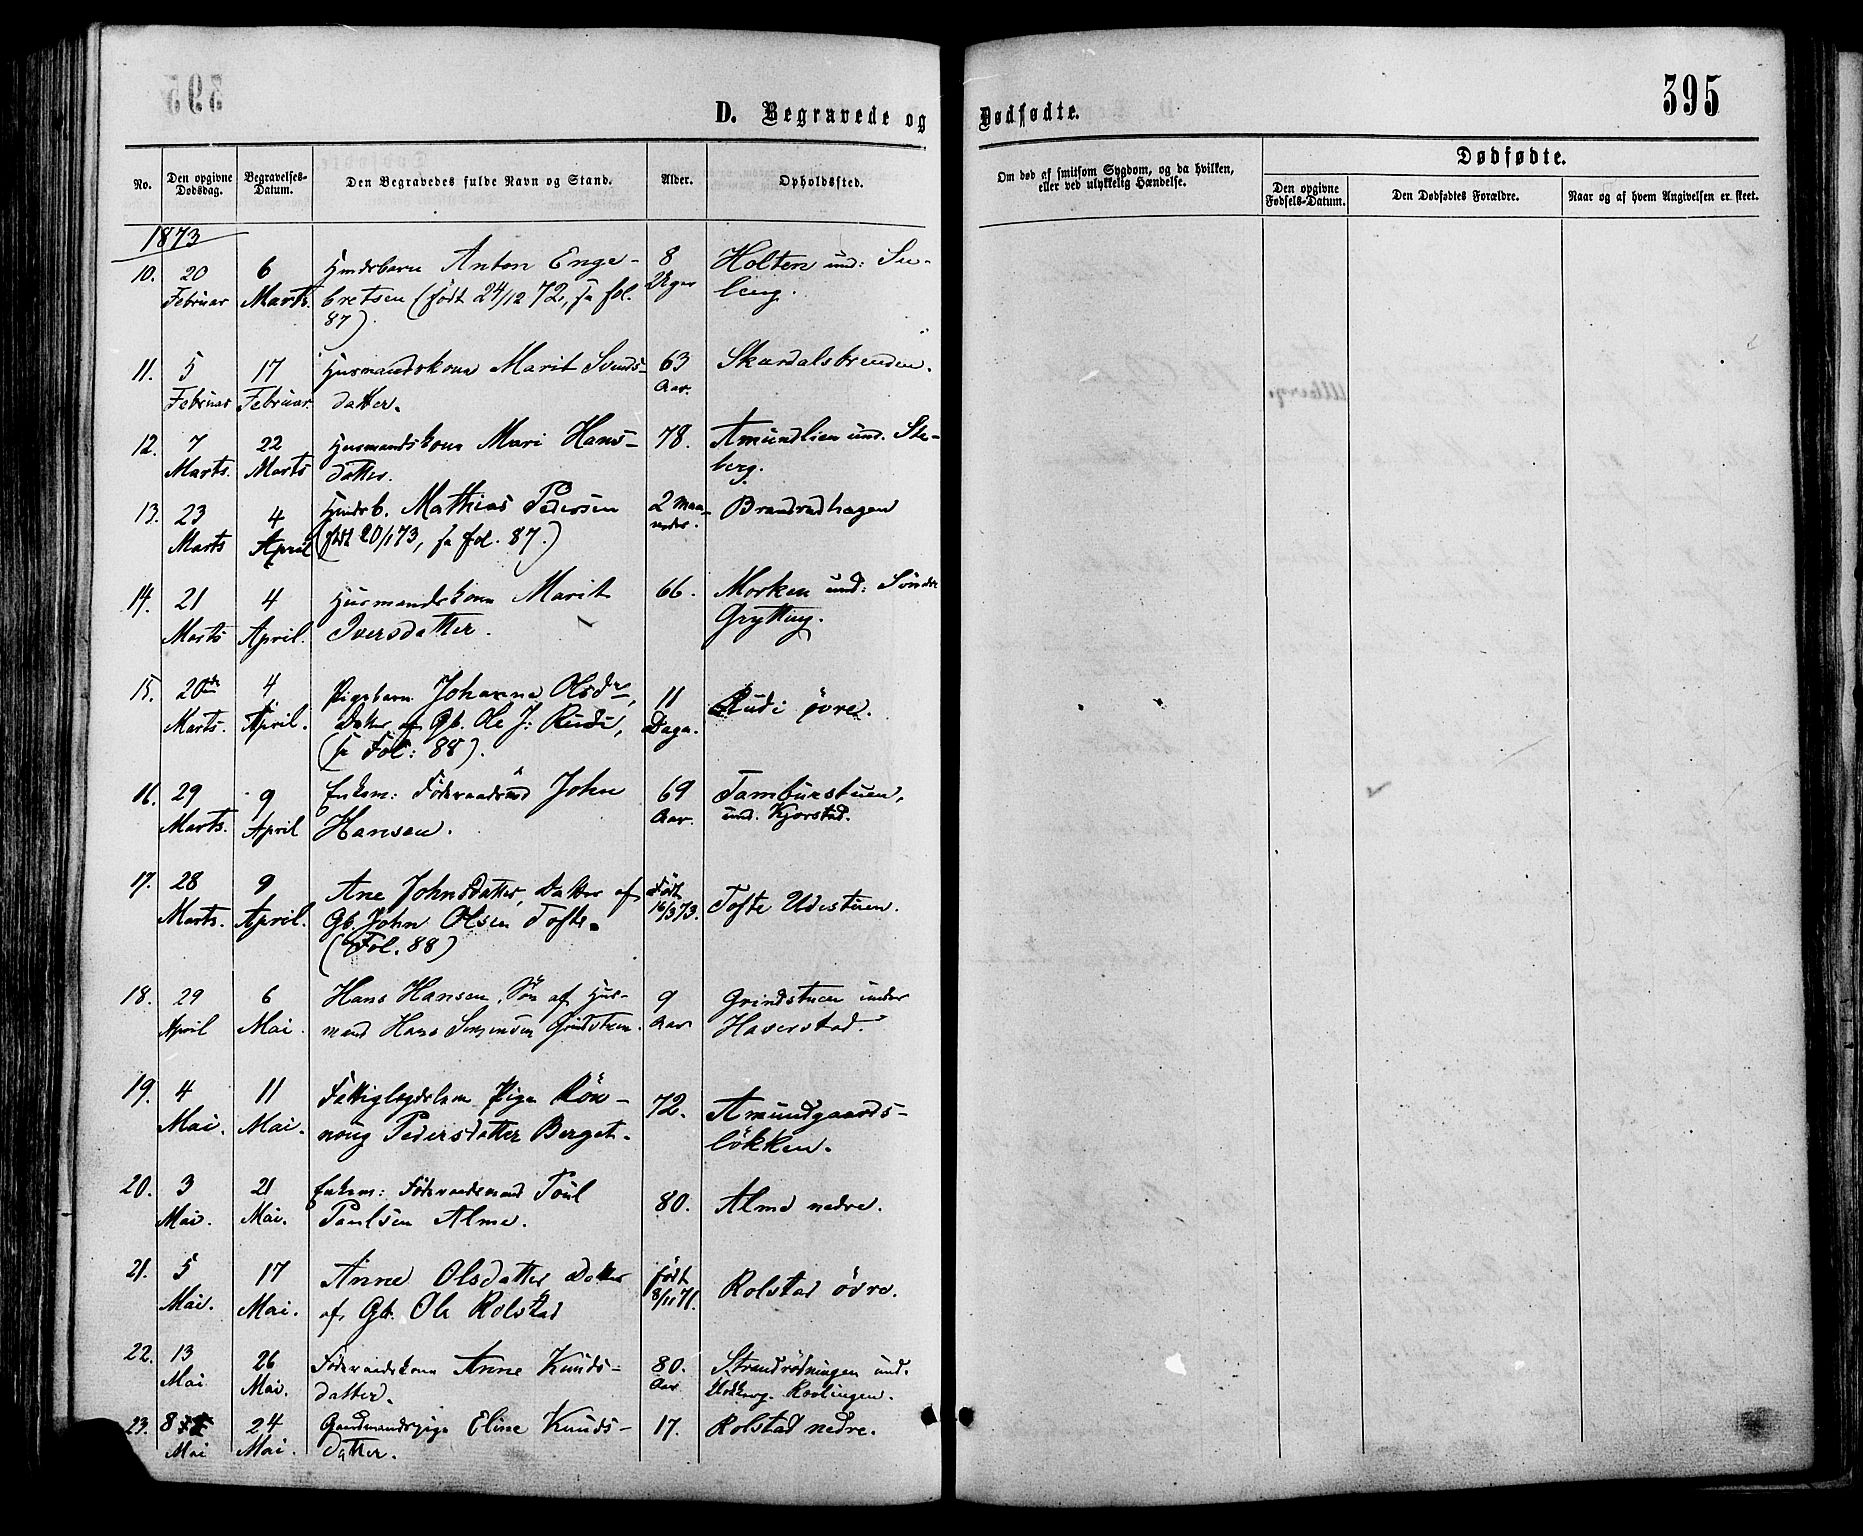 395
D. Begravede og Dødfødte.
No. Den opgivne Dødsdag. Begravelses-Datum. Den Begravedes fulde Navn og Stand. Alder. Opholdssted. Om død af smitsom Sygdom, og da hvilken, eller ved ulykkelig Hændelse. Dødfødte.
Den opgivne Fødsels-Datum. Den Dødfødtes Forældre. Naar og af hvem Angivelsen er skeet.
1873
10. 20 6 Anton Enge- 8 Holten und:
Februar Marts. bretsen (født 24/12 72, se fol. Uger berg.
87).
11. 5 17 Husmandskone Marit Svends- 63 Skardalsbrenden.
Februar Februar. datter. Aar.
12. 7 22 Husmandskone Mari Hans- 78. Amundlien und. Ste-
Marts. Marts datter. berg.
13. 23 4 Mathias Pedersen 2 Maa- Brandvolhagen
Marts April (født 20/1 73, se fol. 87.) neder.
14. 21 4 Husmandskone Marit 66. Morken und: Søndre
Marts April. Iversdatter. Grytting.
15. 20de 4 Pigebarn Johanne Olsdr, 11 Rudi øvre.
Marts. April. Datter af Gb. Ole J: Rudi, Dage.
(se Fol: 88).
16. 29 9 Enkem: Føderaadsmd John 69 Tamburstuen,
Marts. April Hansen. Aar. und. Kjorstad.
17. 28 9 Ane Johnsdatter, Datter af Født Tofte Udistuen.
Marts. April. Gb. John Olsen Tofte. 16/3 73.
(Fol. 88)
18. 29 6 Hans Hansen, Søn af Hus- 9 Grindstuen under
April Mai. mand Hans Simensen Grindstuen. Aar Haverstad.
19. 4 11 Fattiglegdslem Pige Rön- 72. Amundgaards-
Mai. Mai. noug Pedersdatter Berget. løkken.
20. 3 21 Enkem: Føderaadsmand Poul 80. Alme nedre.
Mai. Mai. Paulsen Alme.
21. 5 17 Anne Olsdatter Datter født Rolstad øvre.
Mai. Mai. af Gb. Ole Rolstad 8/11 71.
22. 13 26 Føderaadskone Anne Knuds- 80. Strandrødningen und.
Mai Mai. datter. Aar
23. 8 24 Gaardmandspige Eline Knuds- 17. Rolstad nedre.
Mai Mai. datter.